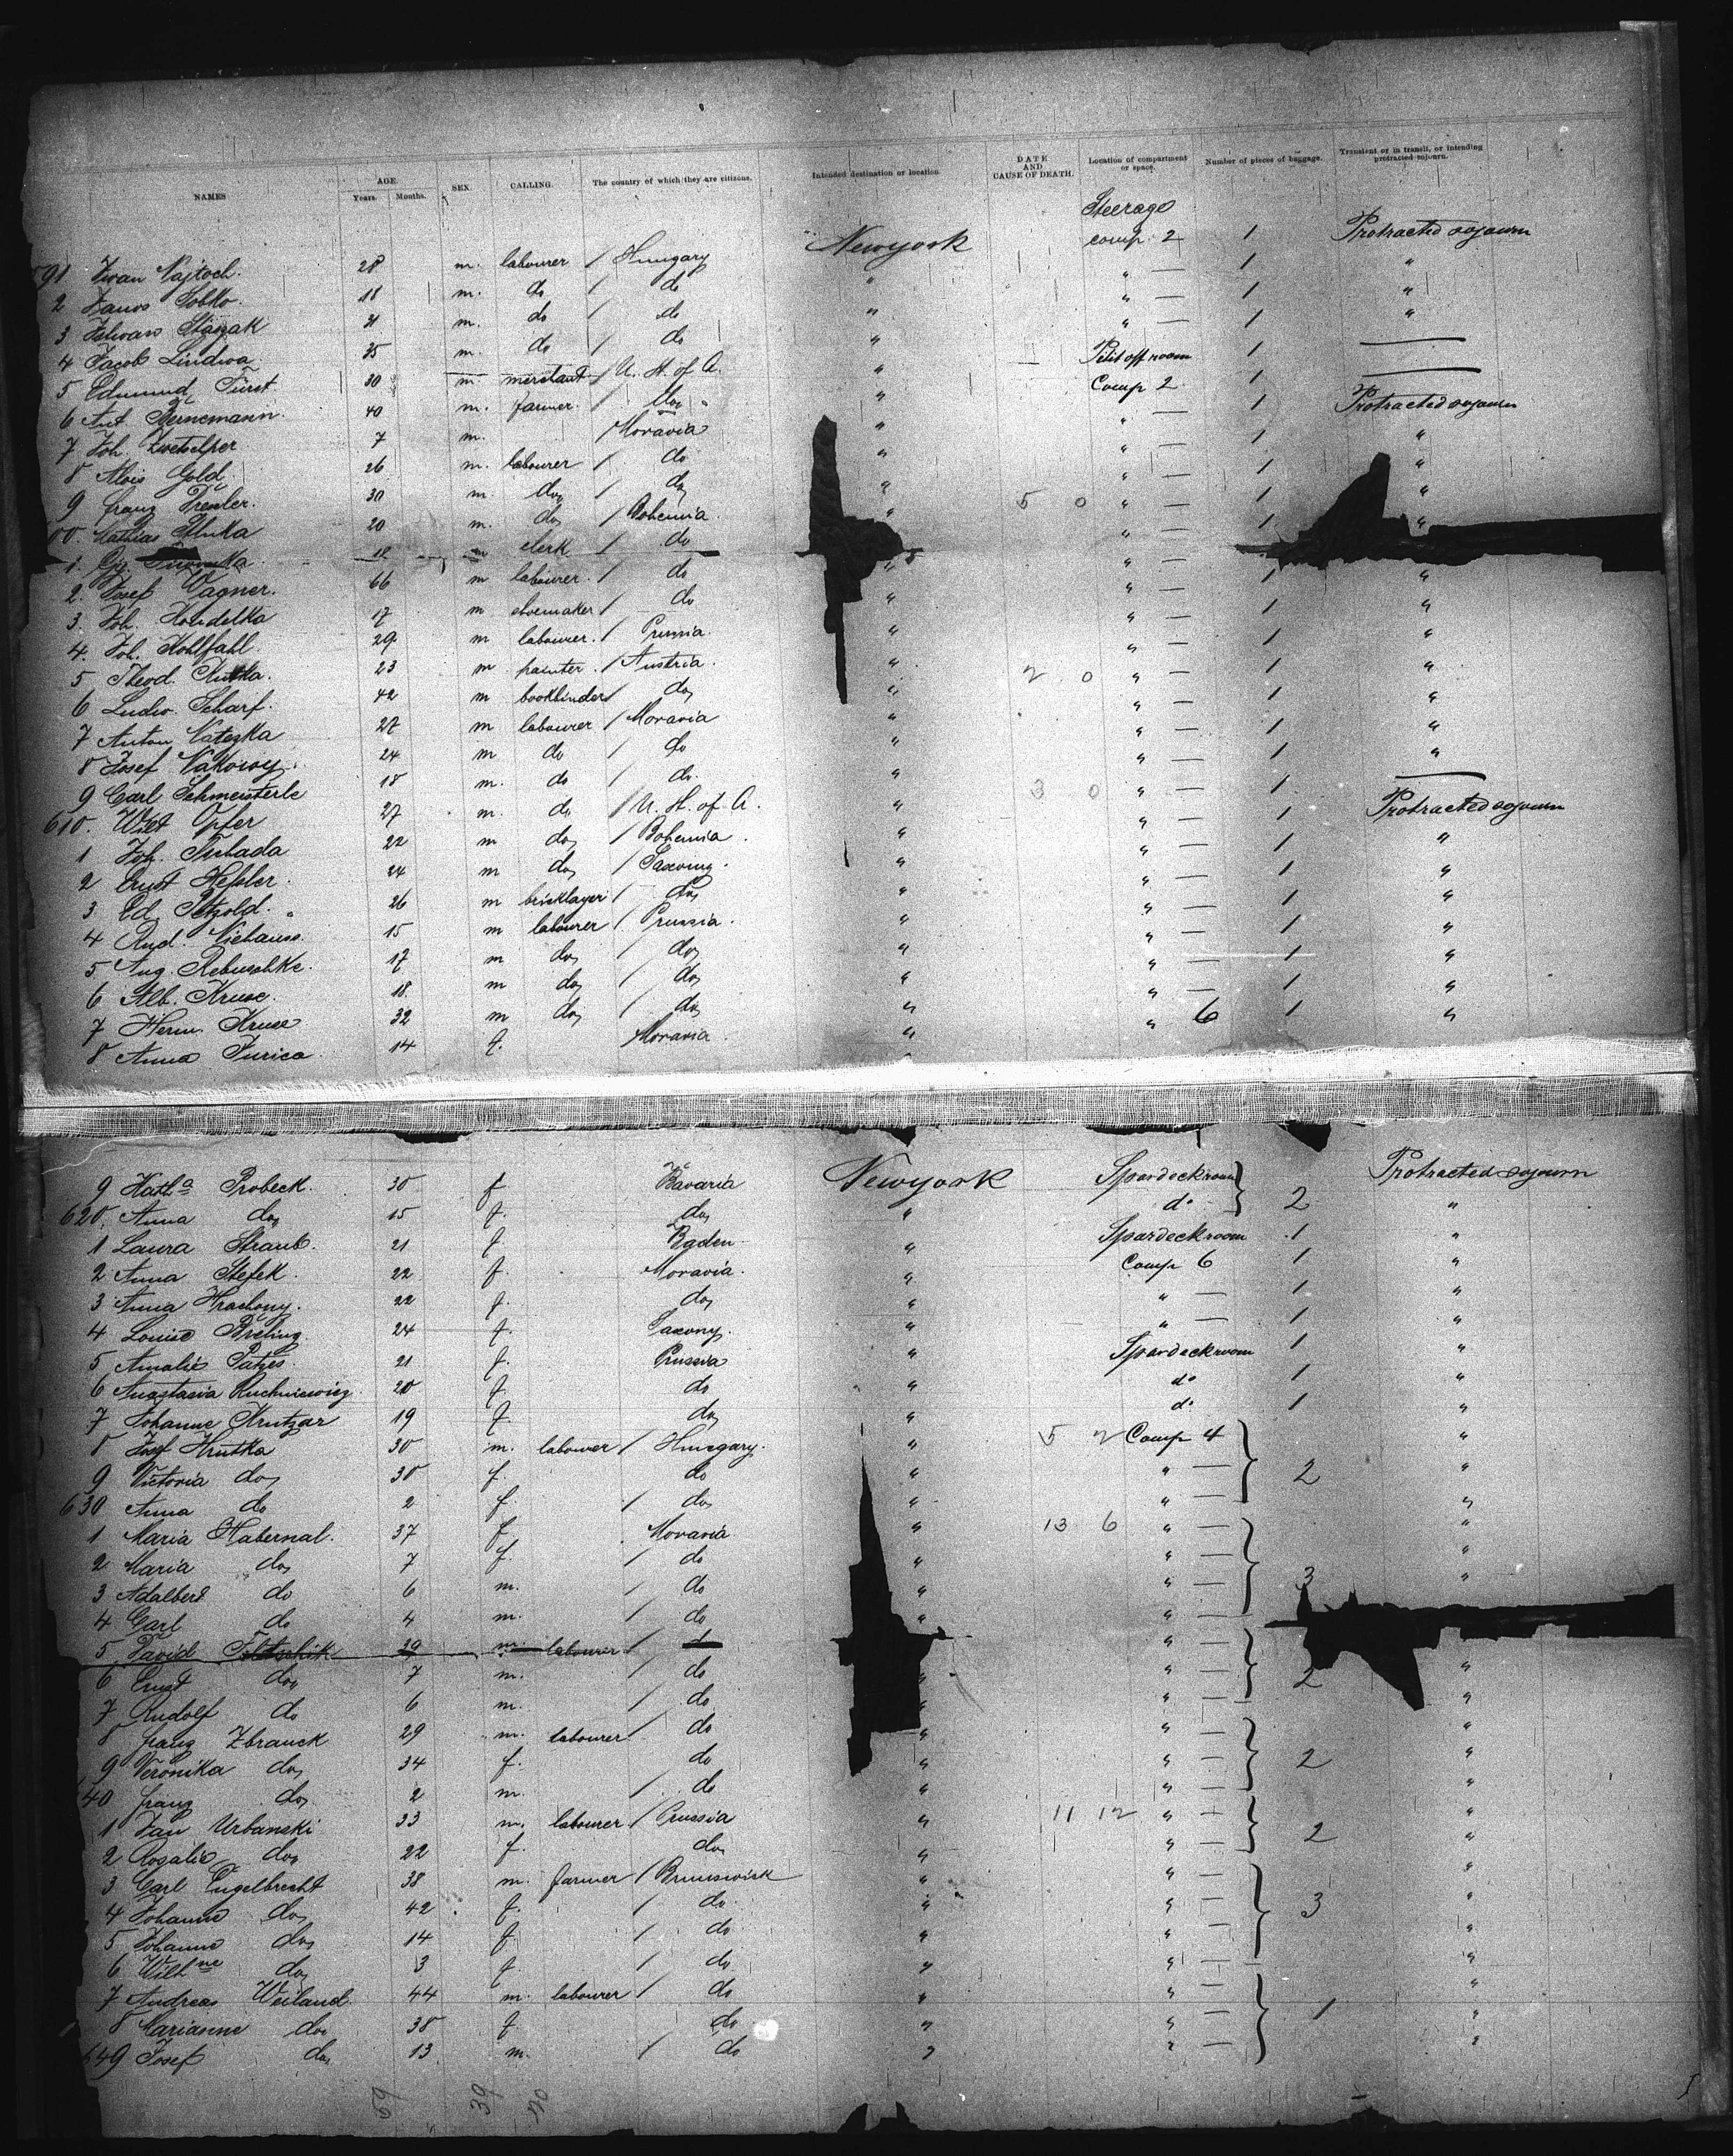 NAMES AGE. Years. Months. SEX. CALLING. The country of which they are citizens. Intended destination or location DATE AND CAUSE OF DEATH. Location of compartment or space. Number of pieces of baggage. Transient or in transit, or intending protracted sojourn.
Steerage
591 Iwan Vajtoch. 28 m. labourer / Hungary Newyork comp. 2 1 Protracted sojourn
2 Janos Sobko. 18 m. do / do " " — 1 "
3 31 m. do / do " " — 1 "
4 Jacob Lindwa 35 m. do / do " " — 1 "
5 Edmund Fürst 30 m. merchant / U. St. of A. " room 1 —
6 Ant. Bernemann. 40 m. farmer. / do " Comp 2 1 —
7 Joh. 7 m. / Moravia " " — 1 Protracted sojourn
8 Alois Gold 26 m. labourer / do " " — 1 "
9 Franz Drexler. 30 m. do / do " " — 1 "
00. Mathias 20 m. do / Bohemia " 5 0 " — 1 "
1. 18 m clerk / do " " — 1 "
2. Josef Wagner. 66 m labourer. / do " " — 1 "
3. Joh. Houdelka 17 m shoemaker / do " " — 1 "
4. Joh. Kohlfahl. 29. m labourer. / Prussia. " " — 1 "
5 Theod. 23 m painter. / Austria. " " — 1 "
6 Ludw. Scharf. 42 m bookbinder / do " 2 0 " — 1 "
7 Anton Vatezka 27 m labourer / Moravia " " — 1 "
8 Josef 24 m do / do " " — 1 "
9 Carl Schmeisterle 18 m. do / do. " " — 1 —
610. Opfer 27 m. do / U. St. of A. " 3 0 " — 1 Protracted sojourn
1 Joh. 22 m do / Bohemia. " " — 1 "
2 Ernst Hessler. 24 m do / Saxony. " " — 1 "
3 Ed. Petzold. 26 m bricklayer / do " " — 1 "
4 Rud. Niehauss. 15 m labourer / Prussia. " " — 1 "
5 Aug. Rebuschke. 17 m do / do " " — 1 "
6 Alb. Kruse. 18. m do / do " " — 1 "
7 Herm. Kruse 32 m do / do " " — 1 "
8 Anna Jurica 14 f. Moravia. " " 6 1 "
9 Katha Probeck. 30 f Bavaria Newyork Spardeckroom } Protracted sojourn
620. Anna do 15 f. do " do } 2 "
1 Laura Straub. 21 f. Baden. " Spardeckroom 1 "
2 Anna Stefek. 22 f. Moravia. " Comp 6 1 "
3 Anna Hrachovy. 22 f. do " " — 1 "
4 Louise Breling. 24 f. Saxony. " " — 1 "
5 Amalie Patzes. 21 f. Prussia " Spardeckroom 1 "
6 Anastasia Ruchniewicz 20 f. do " do 1 "
7 Johanne Krutzar 19 f. do " do 1 "
8 Josef Hrutka 30 m. labourer / Hungary. " 5 2 Comp 4 "
9 Victoria do 30 f. do " " — } 2 "
630 Anna do 2 f. / do " " — "
1 Maria Habernal. 37 f Moravia " 13 6 " — "
2 Maria do 7 f. / do " " — "
3 Adalbert do 6 m. / do " " — } 3 "
4 Carl do 4 m. / do " " —
5 David 39 m. labourer / " —
6 Ernst do 7 m. / do " " — } 2 "
7 Rudolf do 6 m. / do " " — "
8 Franz Zbranek 29 m. labourer / do " " — "
9 Veronika do 34 f. do " " — } 2 "
40 Franz do 2 m. / do " " — "
1 Jan Urbanski 33 m. labourer / Prussia " 11 12 " — "
2 Rosalie do 22 f. do " " — } 2 "
3 Carl Engelbrecht 38 m. farmer / Brunswick " " — "
4 Johanne do 42 f. / do " " — } 3 "
5 Johanne do 14 f. / do " " — "
6 Wilhne do 3 f. / do " " — "
7 Andreas Weiland 44 m. labourer / do " " — "
8 Marianne do 38 f. do " " — } 1 "
649 Josef do 13 m. / do " " — "
69 39 20